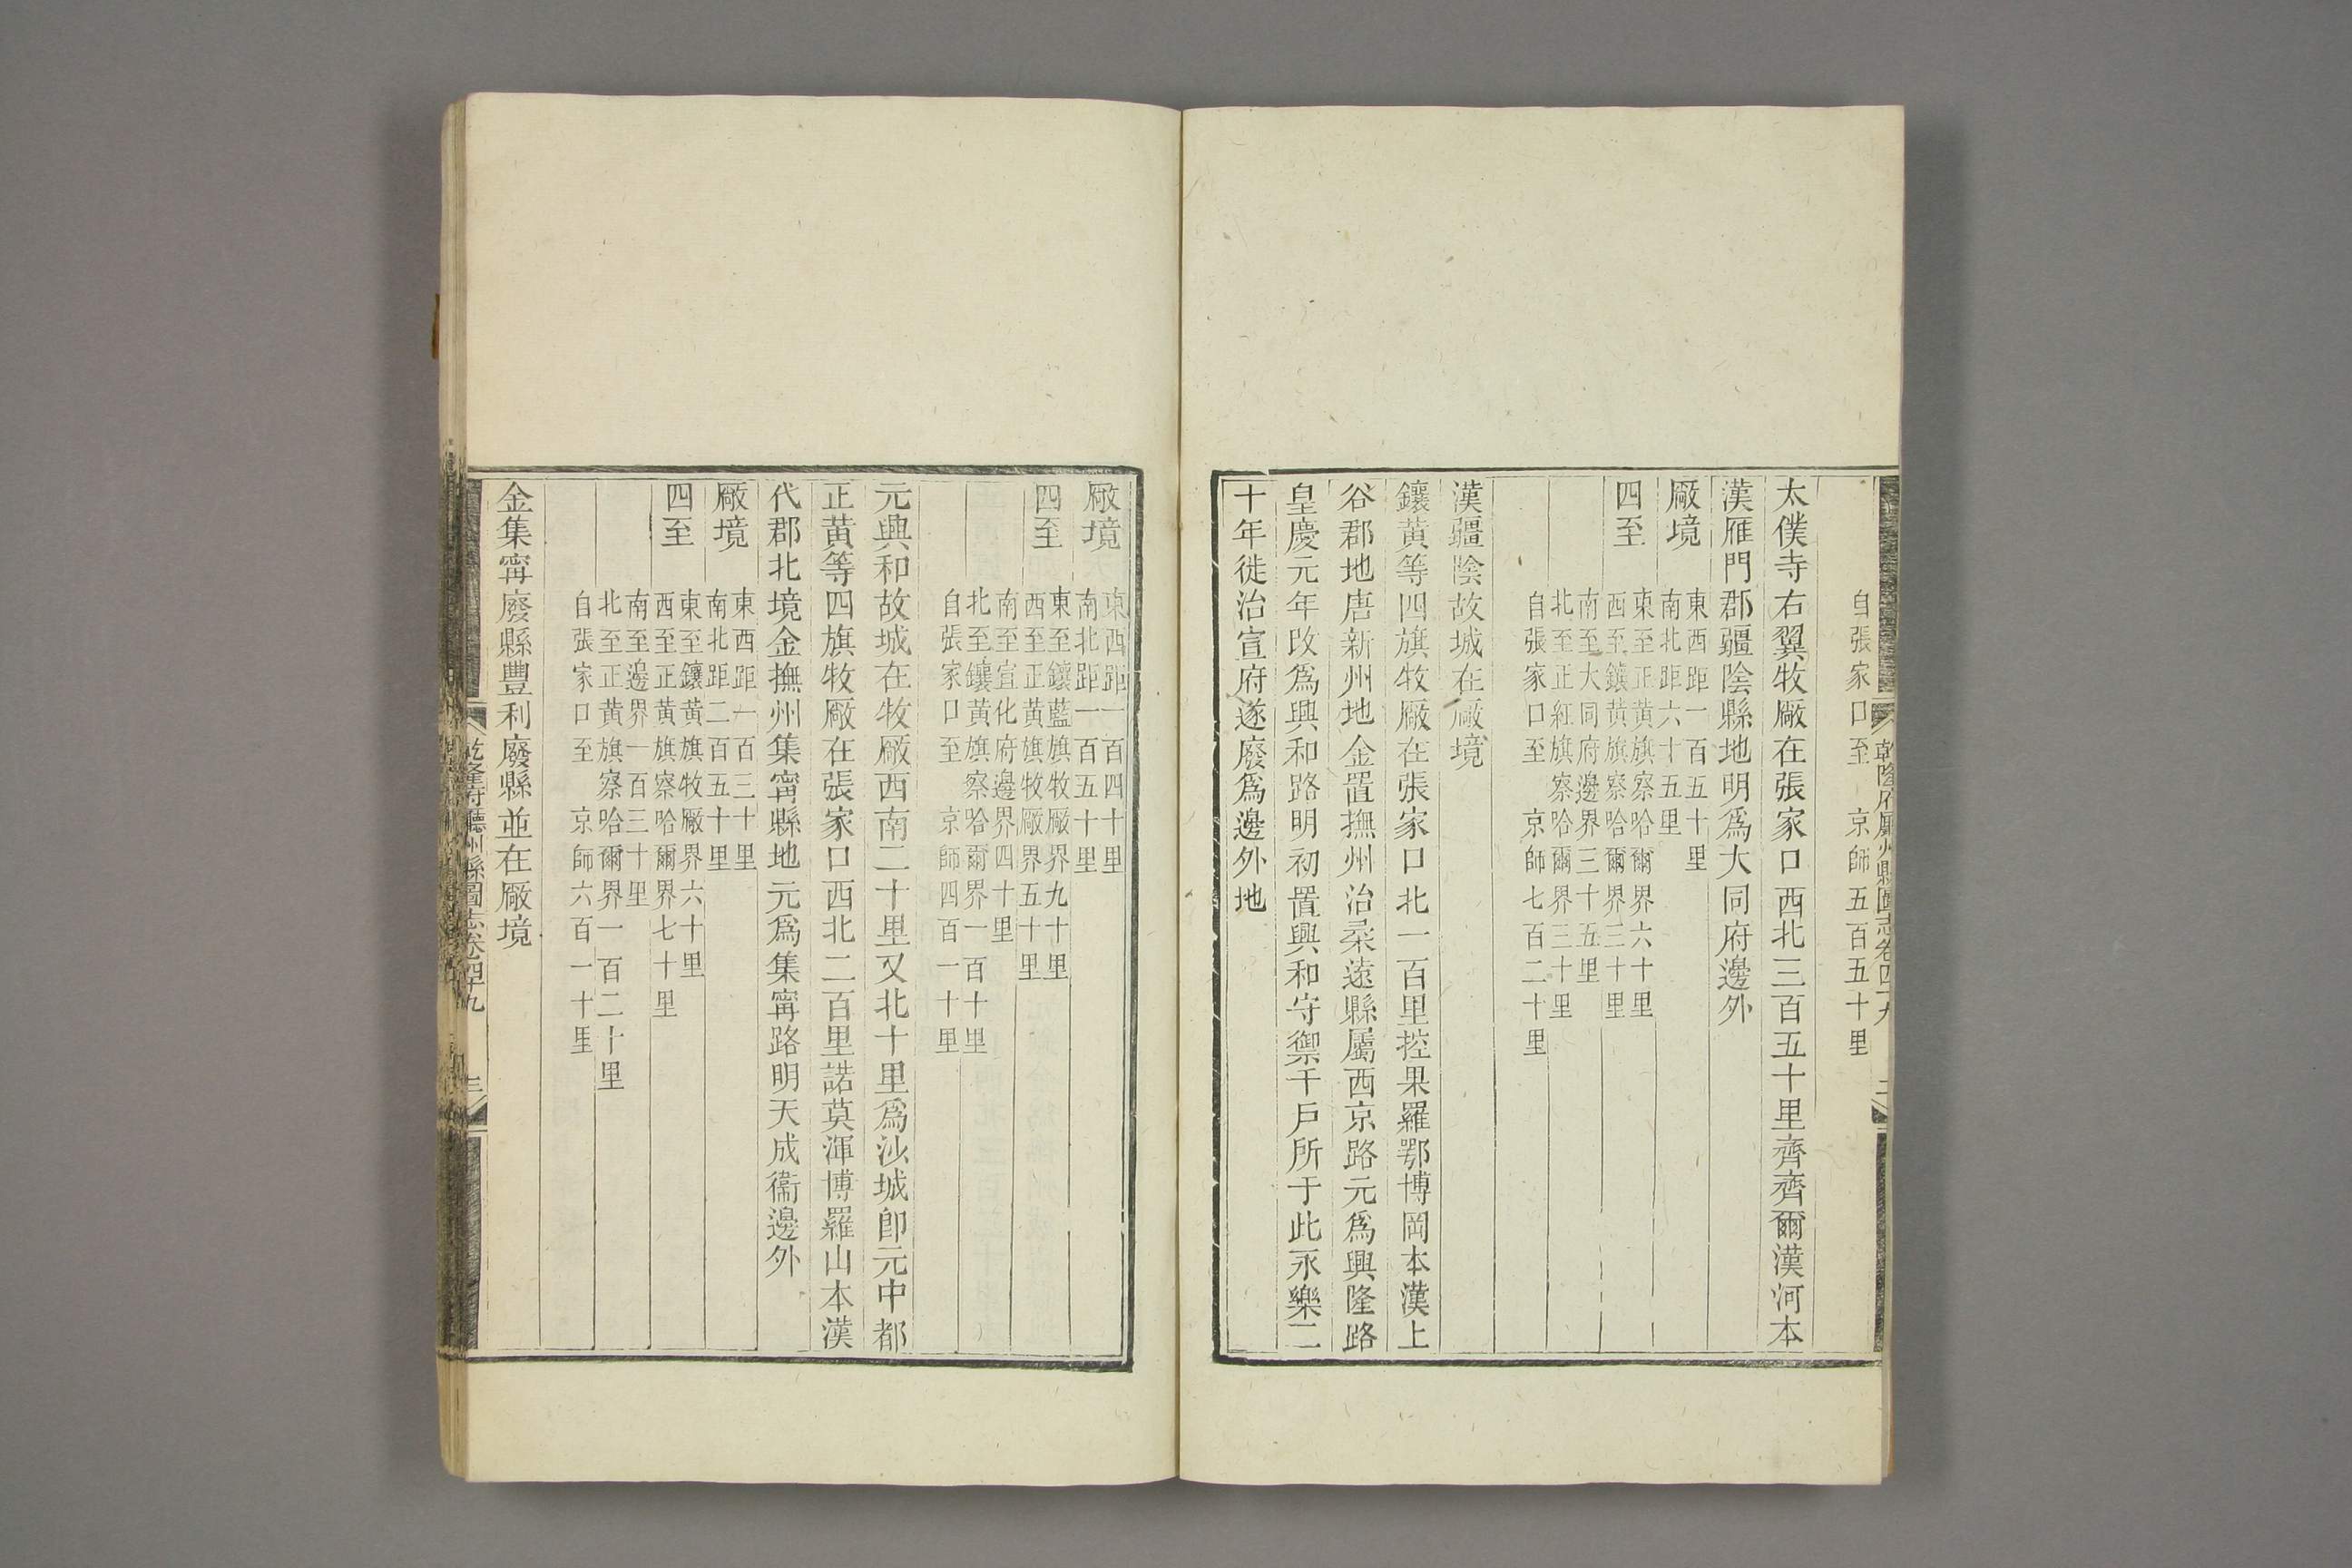 乾隆府廳州縣圖志卷四十九
二
自張家口至　京師五百五十里
太僕寺右翼牧廠在張家口西北三百五十里齊齊爾漢河本
漢雁門郡疆陰縣地明爲大同府邊外
廠境
東西距一百五十里
南北距六十五里
四至
東至正黃旗察哈爾界六十里
西至鑲黃旗察哈爾界三十里
南至大同府邊界三十五里
北至正紅旗察哈爾界三十里
自張家口至　京師七百二十里
漢疆陰故城在廠境
鑲黃等四旗牧廠在張家口北一百里控果羅鄂博岡本漢上
谷郡地唐新州地金置撫州治柔遠縣屬西京路元爲興隆路
皇慶元年改爲興和路明初置興和守禦千戶所于此永樂二
十年徙治宣府遂廢爲邊外地
廠境
東西距一百四十里
南北距一百五十里
四至
東至鑲藍旗牧廠界九十里
西至正黃旗牧廠界五十里
南至宣化府邊界四十里
北至鑲黃旗察哈爾界一百十里
自張家口至　京師四百一十里
元興和故城在牧廠西南二十里又北十里爲沙城卽元中都
正黃等四旗牧廠在張家口西北二百里諾莫渾博羅山本漢
代郡北境金撫州集甯縣地元爲集甯路明天成衞邊外
廠境
東西距一百三十里
南北距二百五十里
四至
東至鑲黃旗牧廠界六十里
西至正黃旗察哈爾界七十里
南至邊界一百三十里
北至正黃旗察哈爾界一百二十里
自張家口至　京師六百一十里
金集甯廢縣豐利廢縣並在廠境
乾隆府廳州縣圖志卷四十九
三